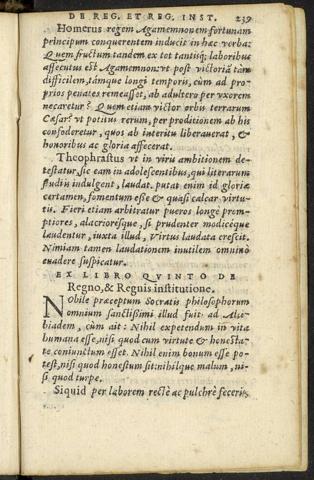 DE REG. ET REG. INST. 239
Homerus regem Agamemnonem fortunam
principum conquerentem inducit in hæc verba:
Quem fructum tandem ex tot tantisq; laboribus
assecutus est Agamemnon: vt post victoriã tam
difficilem, támque longi temporis, cùm ad pro-
prios penates remeasset, ab adultero per vxorem
necaretur? Quem etiam victor orbis terrarum
Cæsar? vt potitus rerum, per proditionem ab his
confoderetur, quos ab interitu liberauerat, &
honoribus ac gloria affecerat.
Theophrastus vt in viris ambitionem de-
testatur, sic eam in adolescentibus, qui literarum
studiis indulgent, laudat. putat enim id gloriæ
certamen, fomentum esse & quasi calcar virtu-
tis. Fieri etiam arbitratur pueros longè prom-
ptiores, alacrioresque, si prudenter modicéque
laudentur, iuxta illud, Virtus laudata crescit.
Nimiam tamen laudationem inutilem omninò
euadere suspicatur.
EX LIBRO QVINTO DE
Regno, & Regnis institutione.
Nobile præceptum Socratis philosophorum
omnium sanctissimi illud fuit ad Alci-
biadem, cùm ait: Nihil expetendum in vita
humana esse, nisi quod cum virtute & honesta-
te coniunctum esset. Nihil enim bonum esse po-
test, nisi quod honestum sit: nihilque malum, ni-
si quod turpe.
Siquid per laborem rectè ac pulchrè feceris,